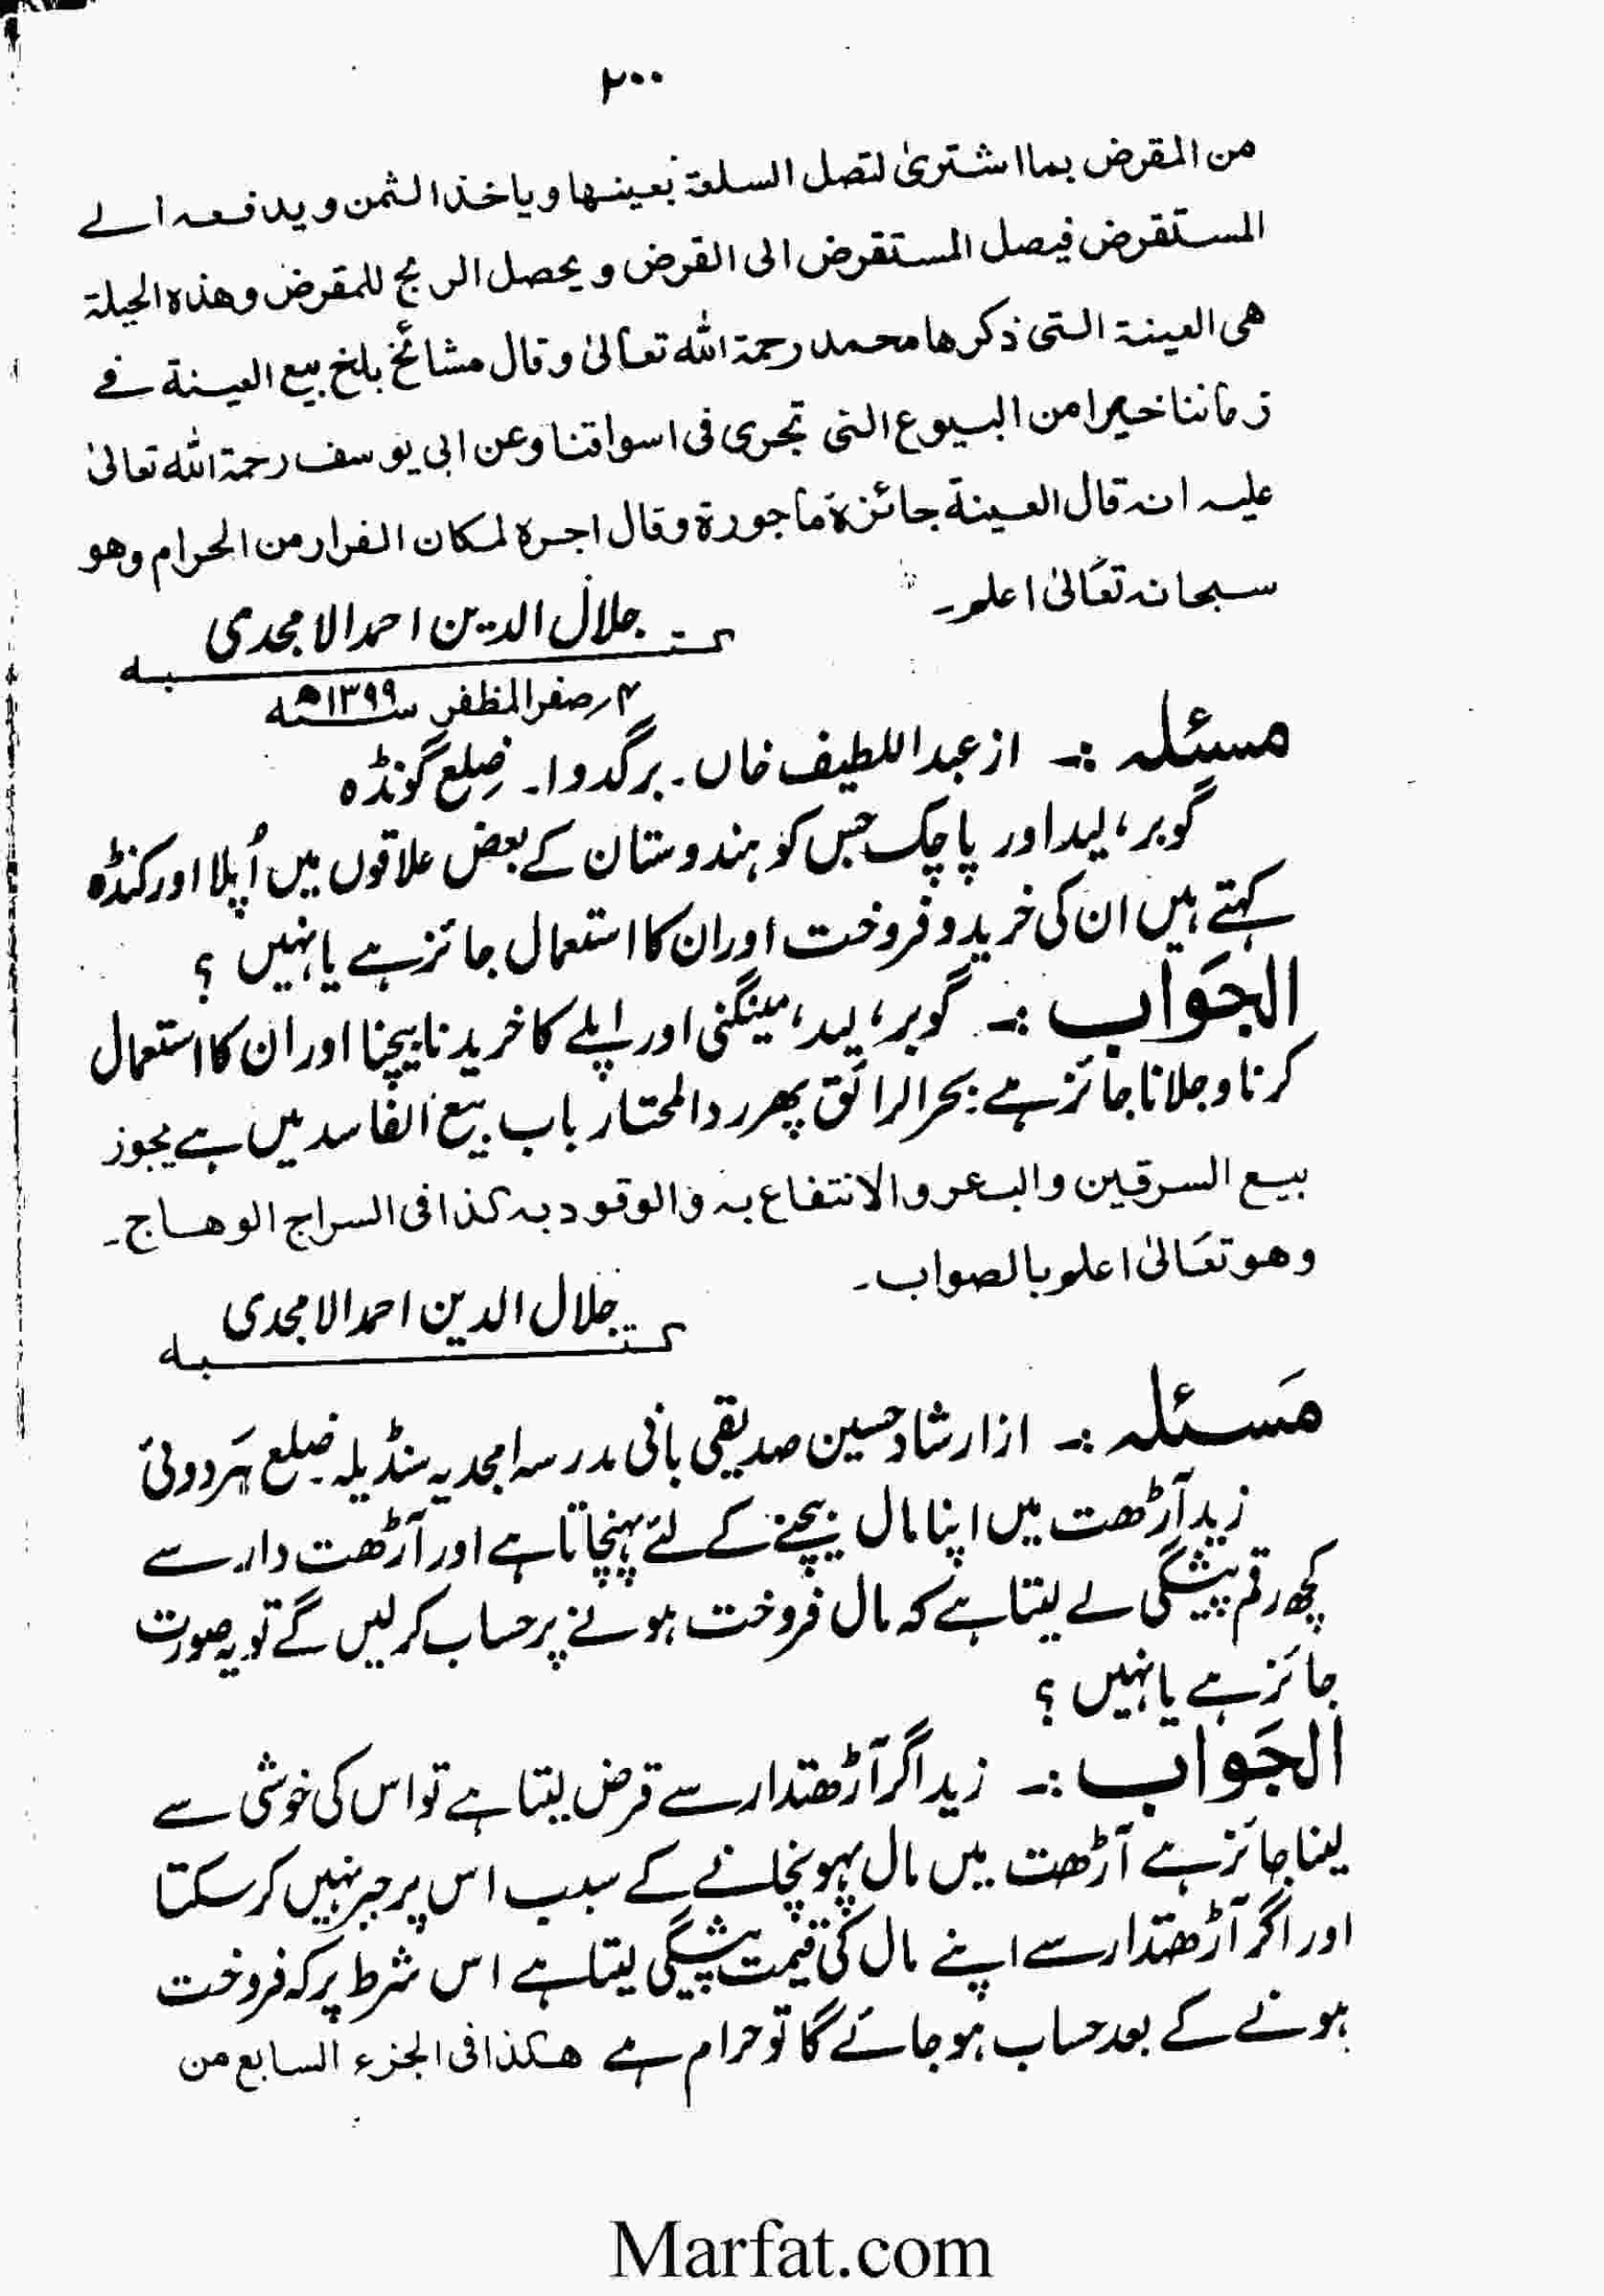 ۲۰۰
من المقرض بما اشتریٰ لتصل السلعۃ بعینھا ویاخذ الثمن ویدفعہ الے
المستقرض فیصل المستقرض الی القرض ویحصل الربح للمقرض وھذہ الحیلۃ
ھی العینۃ التی ذکرھا محمد رحمۃ اللہ تعالیٰ وقال مشائخ بلخ بیع العینۃ فے
زماننا خیرا من البیوع التی تجری فی اسواقنا وعن ابی یوسف رحمۃ اللہ تعالیٰ
علیہ انہ قال العینۃ جائزۃ ماجورۃ وقال اجرہ لمکان الفرار من الحرام وھو
سبحانہ تعالیٰ اعلم۔
جلال الدین احمد الامجدی
کتبہ
۴؍صفر المظفر ۱۳۹۹ھ
مسئلہ :۔ از عبد اللطیف خاں۔ برگدوا۔ ضلع گونڈہ
گوبر، لید اور پاچک جس کو ہندوستان کے بعض علاقوں میں اُپلا اور کنڈہ
کہتے ہیں ان کی خرید و فروخت اور ان کا استعمال جائز ہے یا نہیں ؟
الجَواب :۔ گوبر، لید، مینگنی اور اپلے کا خریدنا بیچنا اور ان کا استعمال
کرنا و جلانا جائز ہے: بحر الرائق پھر رد المحتار باب بیع الفاسد میں ہے یجوز
بیع السرقین والبعر والانتفاع بہ والوقود بہ کذا فی السراج الوھاج۔
وھو تعَالیٰ اعلم بالصواب۔
جلال الدین احمد الامجدی
کتبہ
مَسئلہ :۔ از ارشاد حسین صدیقی بانی مدرسہ امجدیہ سنڈیلہ ضلع ہَردوئی
زید آڑھت میں اپنا مال بیچنے کے لئے پہنچاتا ہے اور آڑھت دار سے
کچھ رقم پیشگی لے لیتا ہے کہ مال فروخت ہونے پر حساب کرلیں گے تو یہ صورت
جائز ہے یا نہیں ؟
الجَواب :۔ زید اگر آڑھتدار سے قرض لیتا ہے تو اس کی خوشی سے
لینا جائز ہے آڑھت میں مال پہونچانے کے سبب اس پر جبر نہیں کر سکتا
اور اگر آڑھتدار سے اپنے مال کی قیمت پیشگی لیتا ہے اس شرط پر کہ فروخت
ہونے کے بعد حساب ہو جائے گا تو حرام ہے ھکذا فی الجزء السابع من
Marfat.com